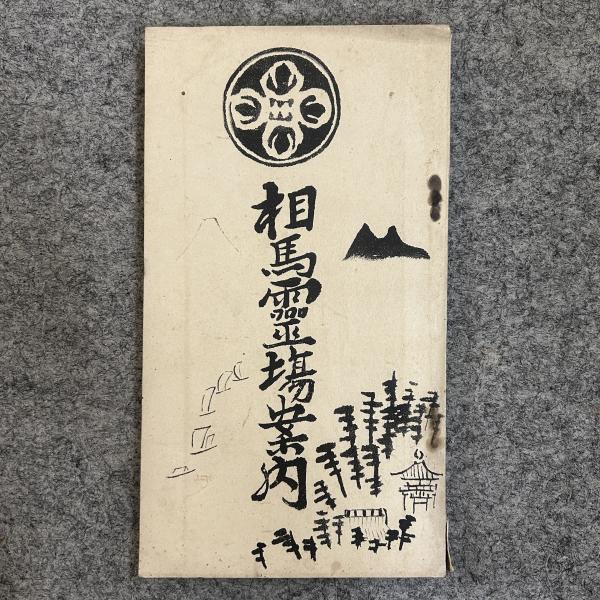 相馬靈場案内